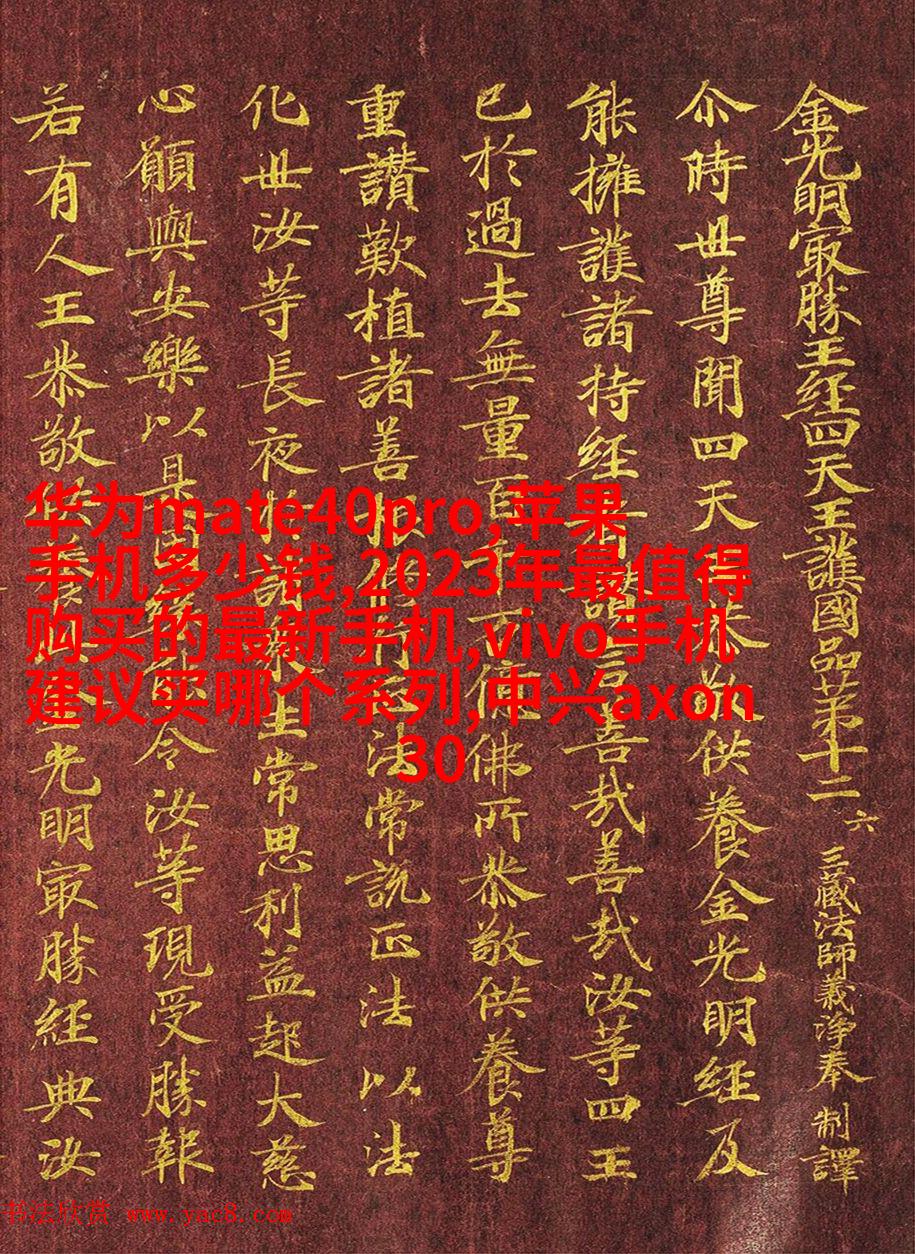 金光明冣勝王經四天王護國品苐十二 六 三藏法師義淨奉 制譯
尒時世尊聞四天 供養金光明經及
能擁護諸持經 言善哉善哉汝等四王
已於過去無量百 佛所恭敬供養尊
重讚歎植諸善根 法常說正法以法
化世汝等長夜於諸 生常思利益起大慈
心願與安樂以是 令汝等現受勝報
若有人王恭敬供養 金光明冣勝經典汝
华为mate40pro,苹果
手机多少钱,2023年最值得
购买的最新手机,vivo手机
建议买哪个系列,中兴axon
30
书法欣赏 www.yac8.com